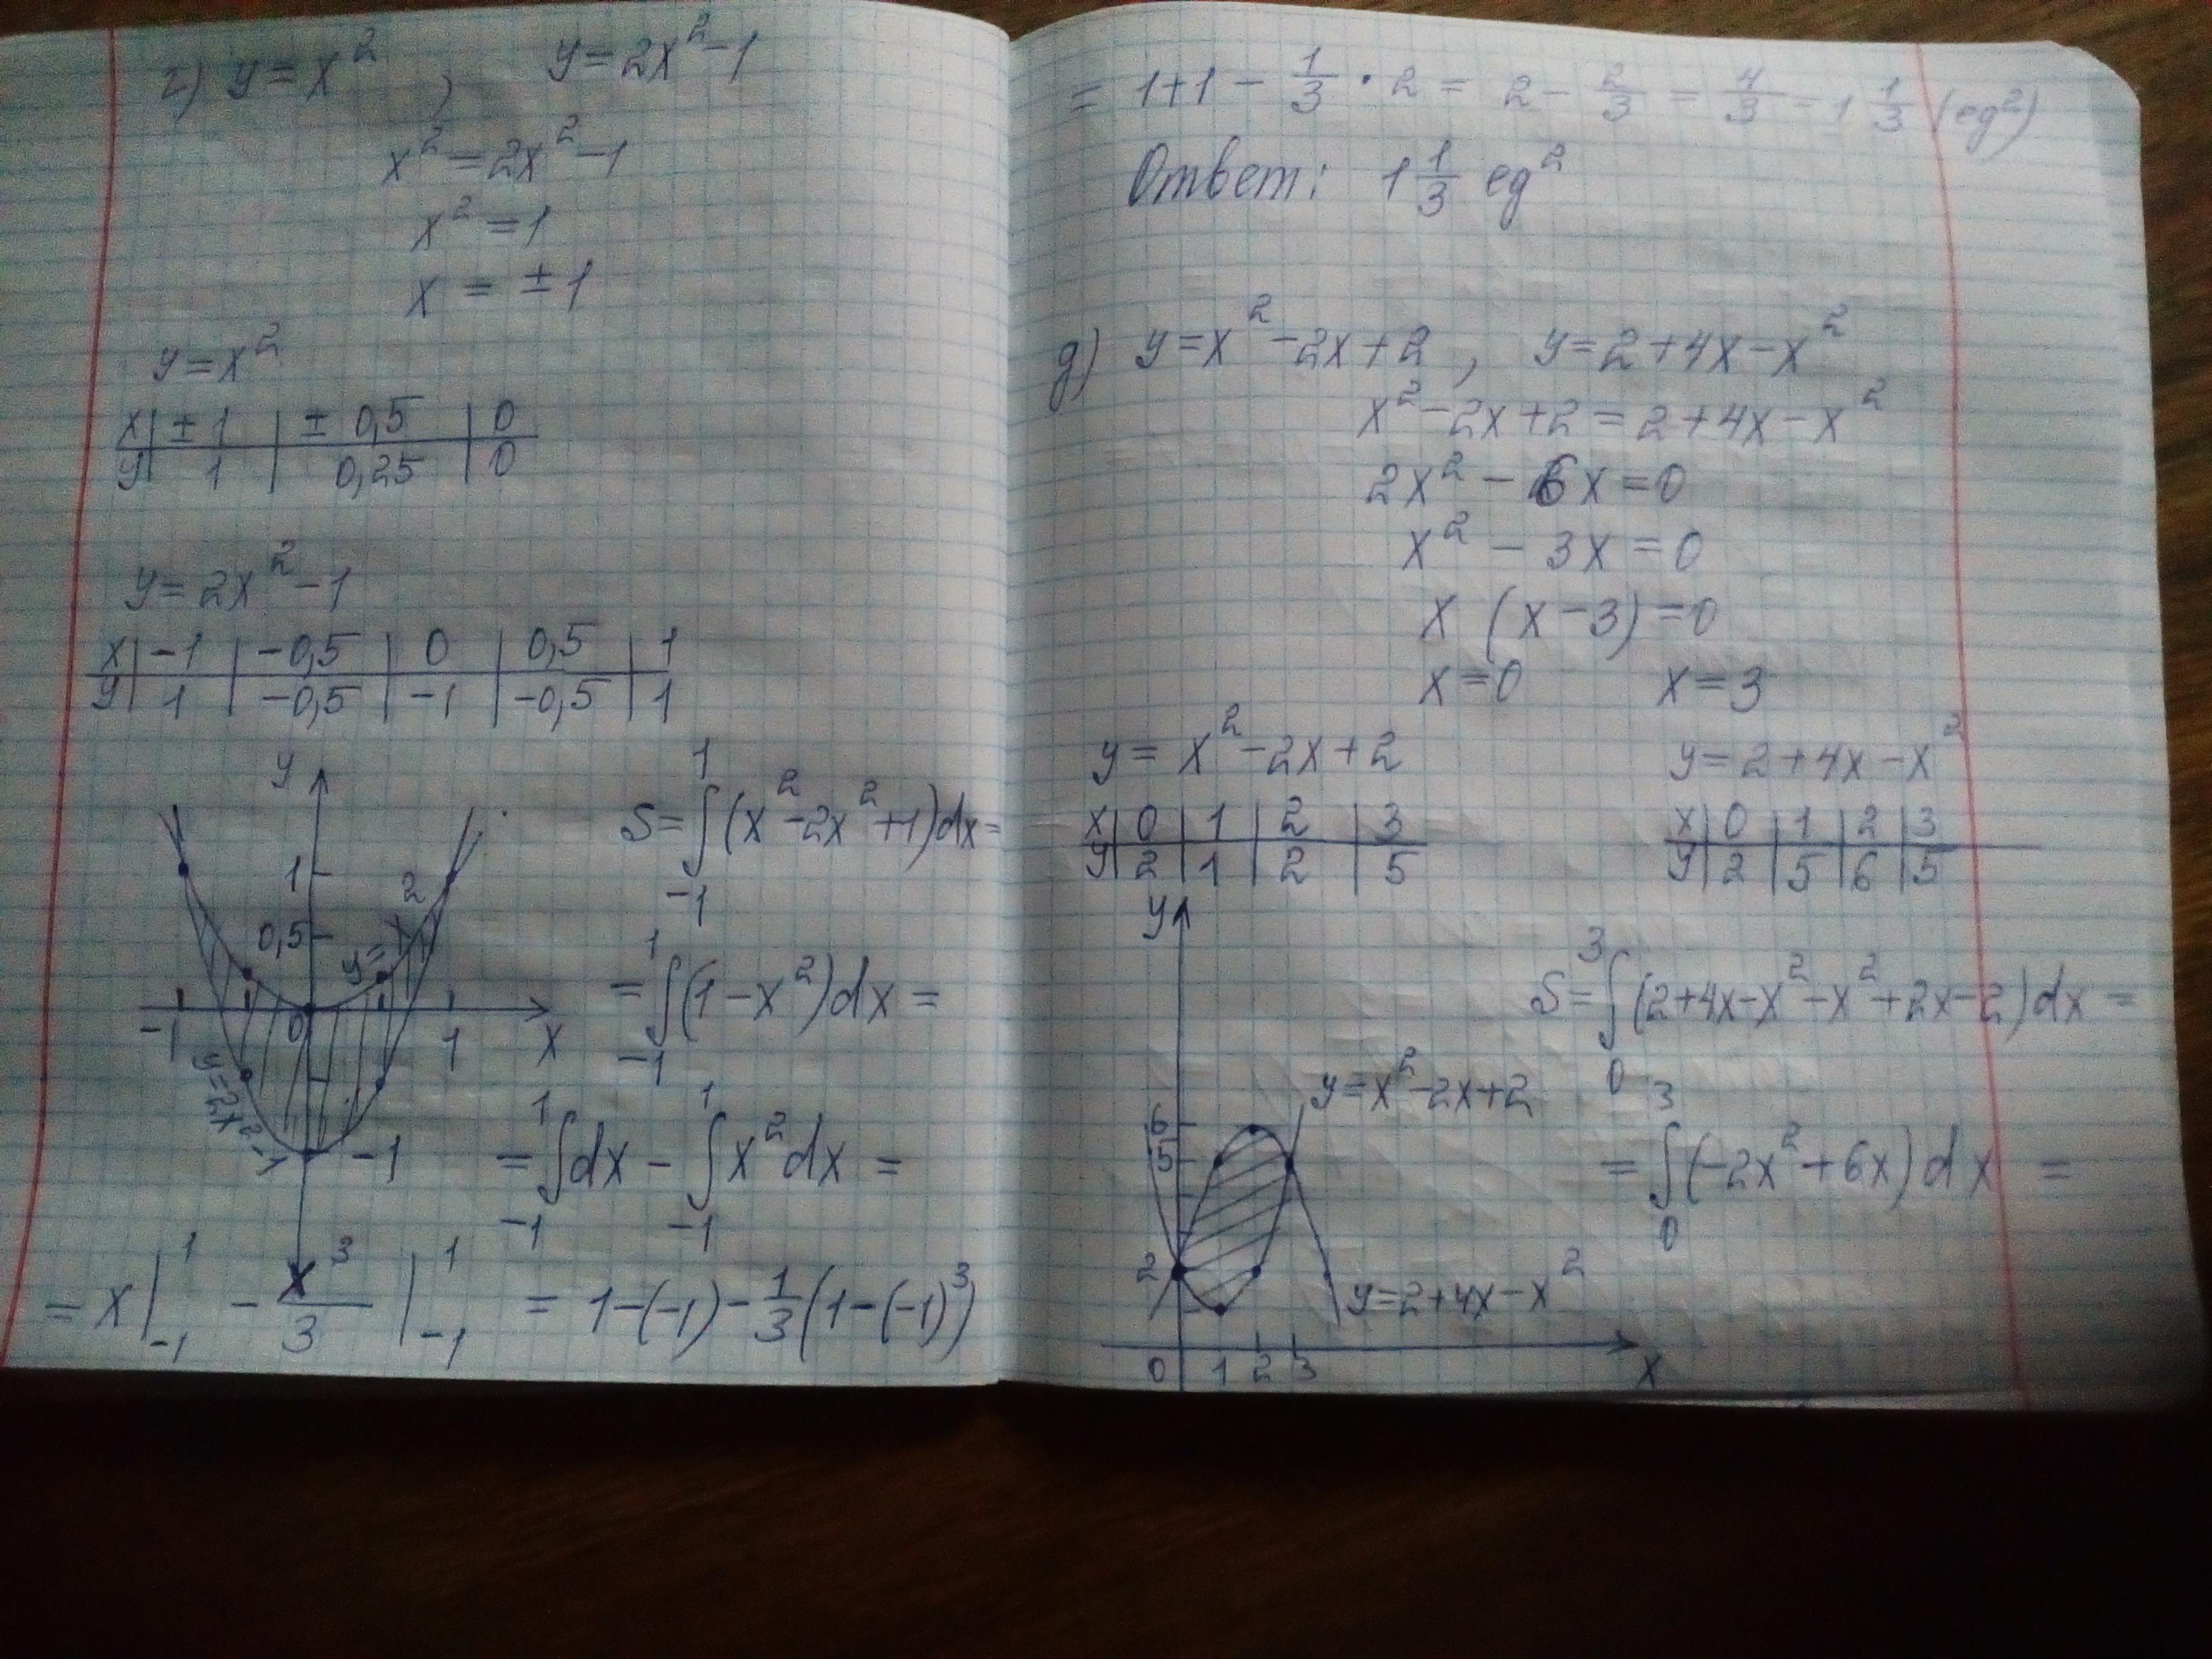 г) y = x², y = 2x² - 1
x² = 2x² - 1
x² = 1
x = ± 1
y = x²
x | ± 1 | ± 0,5 | 0
y | 1 | 0,25 | 0
y = 2x² - 1
x | -1 | -0,5 | 0 | 0,5 | 1
y | 1 | -0,5 | -1 | -0,5 | 1
y
1
0,5
y = x²
-1 0 1 x
y = 2x² - 1
-1
S = ∫₋₁¹ (x² - 2x² + 1) dx =
= ∫₋₁¹ (1 - x²) dx =
= ∫₋₁¹ dx - ∫₋₁¹ x² dx =
= x |₋₁¹ - x³/3 |₋₁¹ = 1 - (-1) - 1/3 (1 - (-1)³)
= 1 + 1 - 1/3 · 2 = 2 - 2/3 = 4/3 = 1 1/3 (ед²)
Ответ: 1 1/3 ед²
д) y = x² - 2x + 2, y = 2 + 4x - x²
x² - 2x + 2 = 2 + 4x - x²
2x² - 6x = 0
x² - 3x = 0
x (x - 3) = 0
x = 0 x = 3
y = x² - 2x + 2
x | 0 | 1 | 2 | 3
y | 2 | 1 | 2 | 5
y = 2 + 4x - x²
x | 0 | 1 | 2 | 3
y | 2 | 5 | 6 | 5
y
6
5
2
0 1 2 3 x
y = x² - 2x + 2
y = 2 + 4x - x²
S = ∫₀³ (2 + 4x - x² - x² + 2x - 2) dx =
= ∫₀³ (-2x² + 6x) dx =